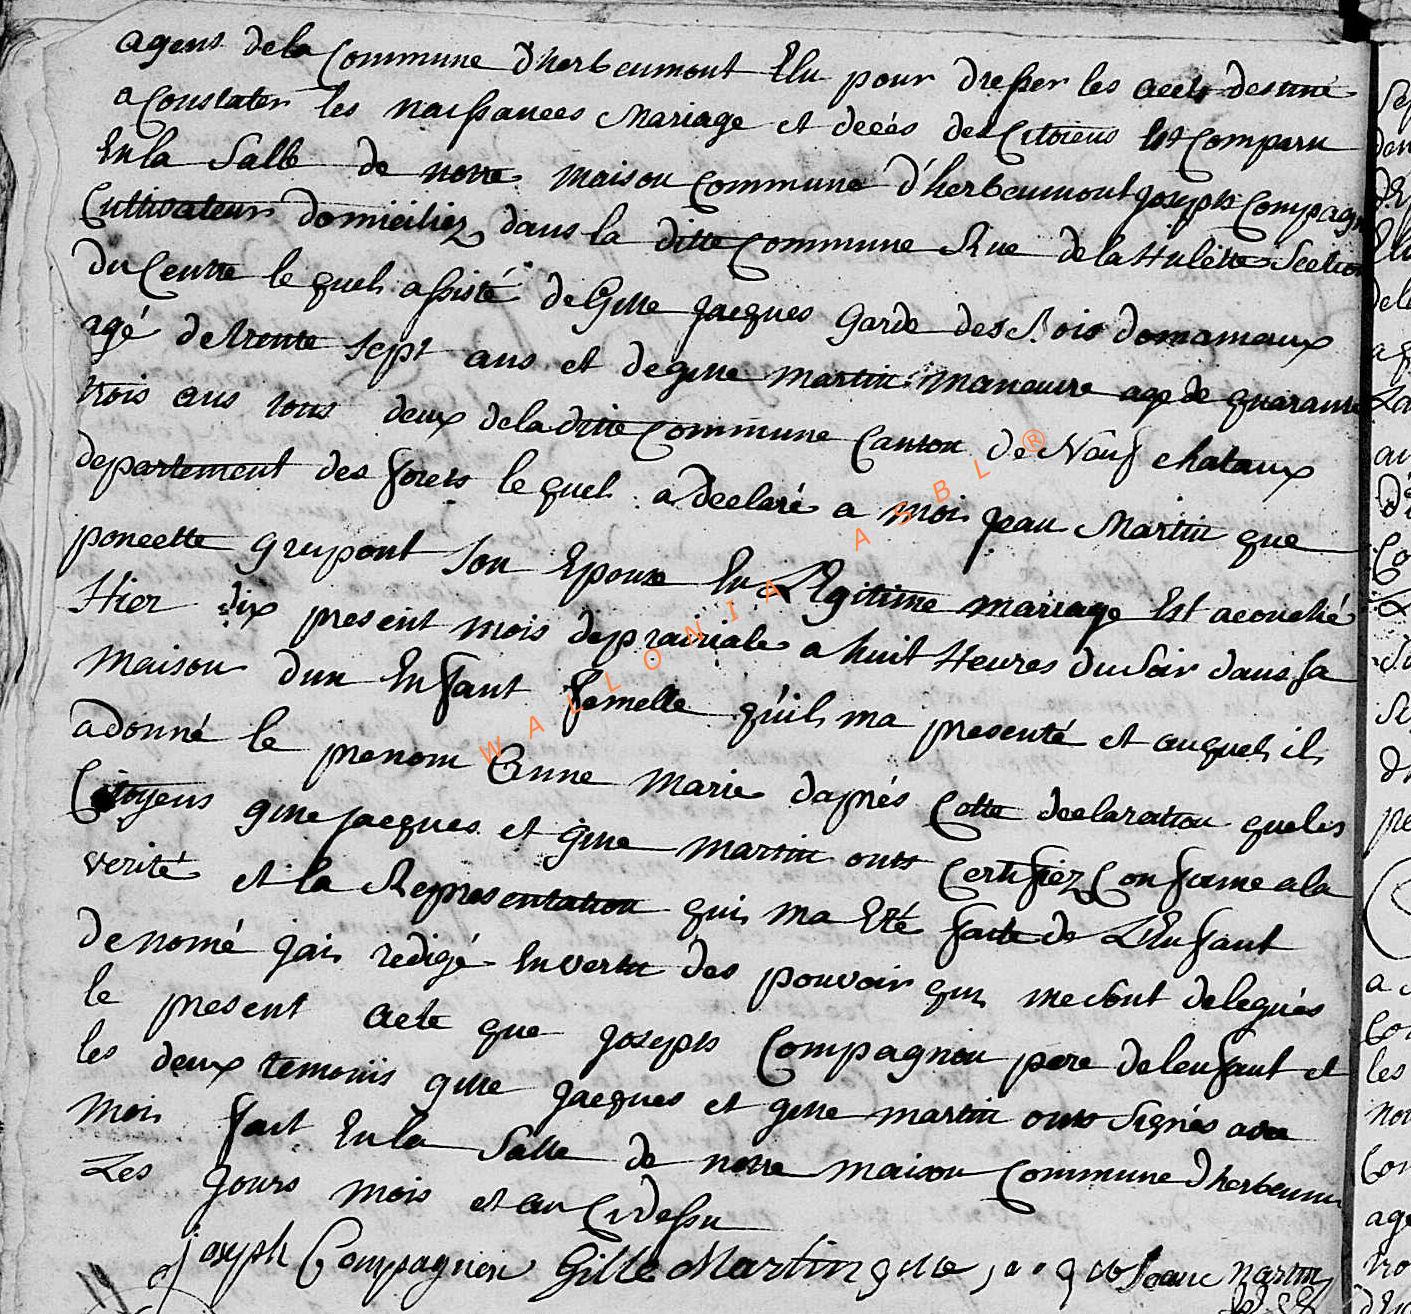 agens de la Commune d'herbeumont Elu pour dresser les acts destiné
a Constater les naissances Mariage et decés des Citoiens Est Comparu
En la Salle de notre maison Commune d'herbeumont joseph Compagn
Cultivateur domiciliez dans la ditte Commune Rue de la Hulette Section
du Centre le quel assisté de Gille jacques Garde des Bois domaniaux
agé de trente sept ans et de gille martin maneuvre age de quarante
trois ans tous deux de la ditte Commune Canton de Neuf chataux
departement des forets le quel a declaré a moi jean Martin que
poncette grupont Son Epouse En Legitime mariage Est acouchée
Hier dix present mois de prairiale a huit Heures du soir dans sa
maison d'un Enfant femelle qu'il ma presenté et auquel il
a donné le prenom Anne Marie dapres Cette declaration que les
Citoyens gille jacques et gille martin onts Certifiez Conforme a la
verité et la Representation qui ma Eté faite de L'Enfant
denomé jai redigé En vertu des pouvoir qui me sont delegués
le present acte que joseph Compagnion pere de lenfant et
les deux temoins gille jacques et gille martin onts Signés avec
moi fait En la Salle de notre maison Commune d'herbeumon
Les jours mois et an Cy dessu
joseph Compagnion Gille Martin gille jacq Jean Martin
WALLONIA ASBL ®